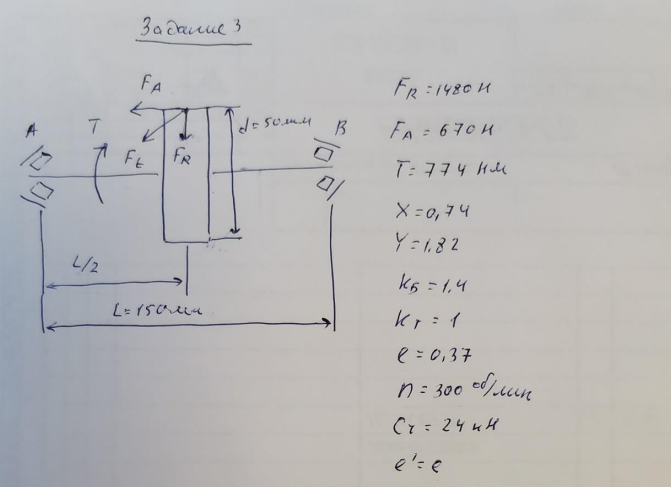 Задание 3
F_A
A
T
F_t
F_R
d=50мм
B
L/2
L=150мм
F_R=1480 Н
F_A=670 Н
T=774 Нм
X=0,74
Y=1,82
K_Б=1,4
K_т=1
e=0,37
n=300 об/мин
C_r=24 кН
e'=e